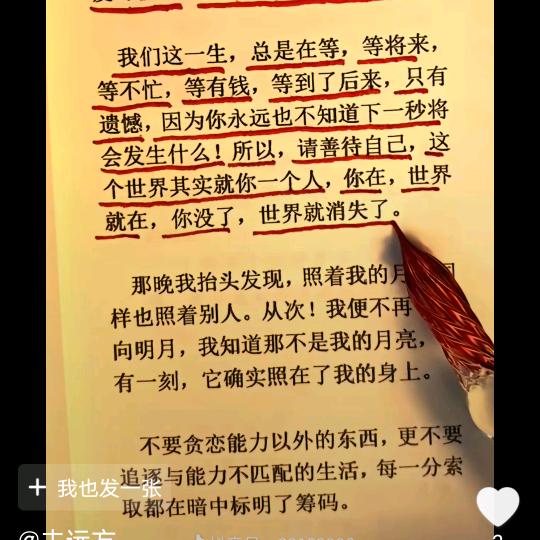 我们这一生，总是在等，等将来，
等不忙，等有钱，等到了后来，只有
遗憾，因为你永远也不知道下一秒将
会发生什么！所以，请善待自己，这
个世界其实就你一个人，你在，世界
就在，你没了，世界就消失了。
那晚我抬头发现，照着我的月 同
样也照着别人。从次！我便不再
向明月，我知道那不是我的月亮，
有一刻，它确实照在了我的身上。
不要贪恋能力以外的东西，更不要
追逐与能力不匹配的生活，每一分索
取都在暗中标明了筹码。
+ 我也发一张